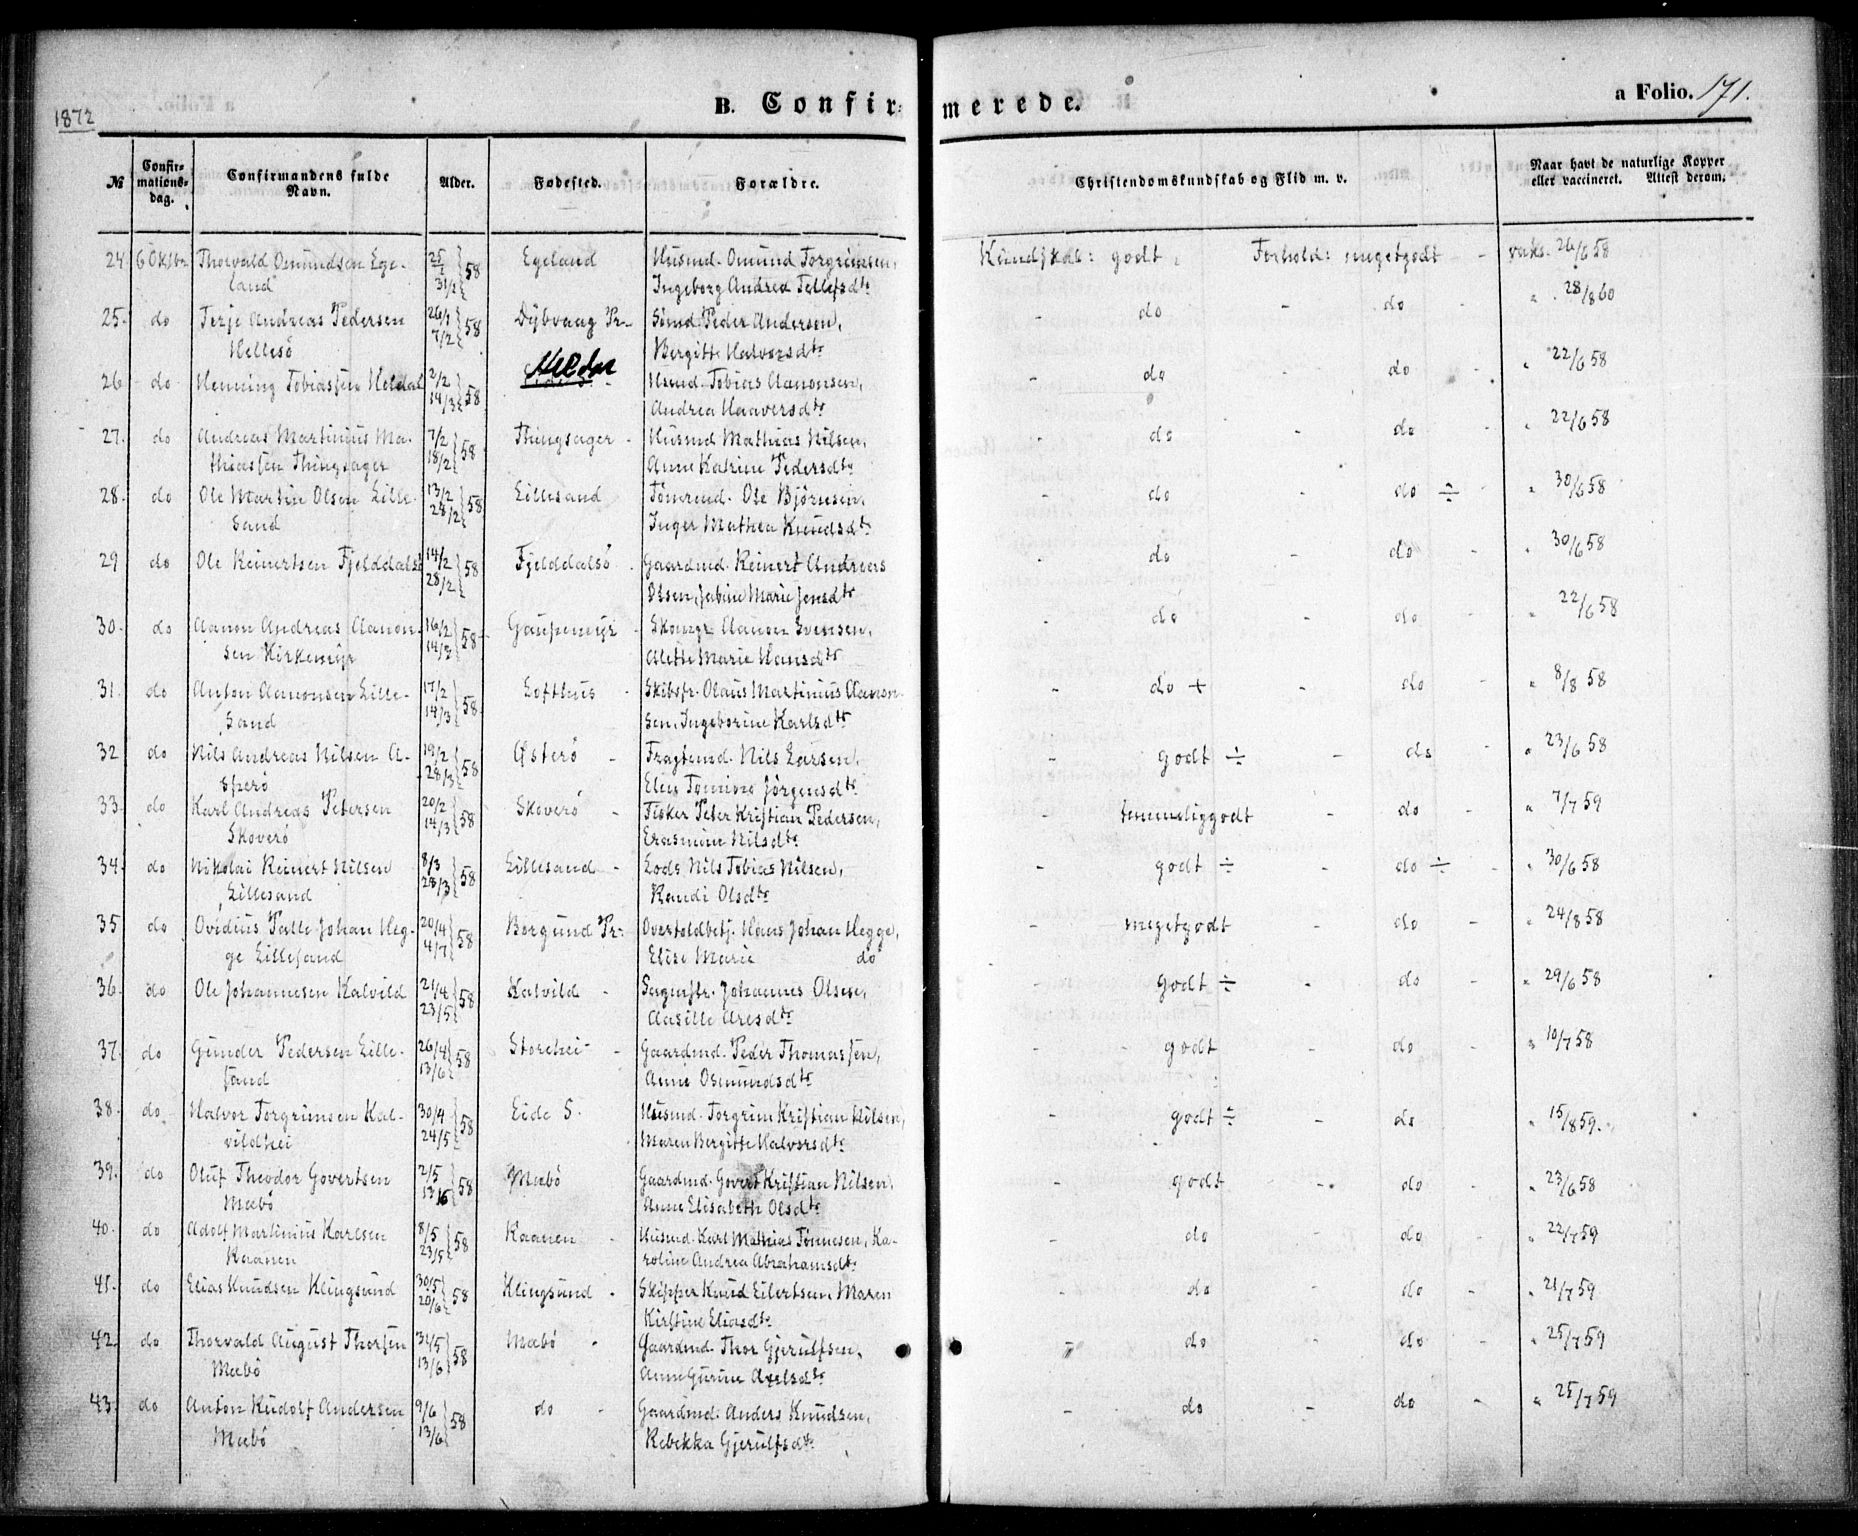 1872
B. Confir- merede.
a Folio. 171.
№ Confir-mations-dag. Confirmandens fulde Navn. Alder. Fødested. Forældre. Christendomskundskab og Flid m. v. Naar havt de naturlige Kopper eller vaccineret. Attest derom.
24 6 Oktbr Thorvald Osmundsen Ege- 25/1 58 Egeland Husmd. Omund Torgrimsen, Kundskab: godt, - Forhold: megetgodt - vaks. 26/6 58
land 31/2 Ingeborg Andrea Tellefsdtr
25. do Terje Andreas Pedersen 26/1 58 Dybvaag Pr- Sømd Peder Andersen, - do - do " 28/8 60
Hellesö 7/2 Bergitte Halvorsdtr
26 do Henning Tobiassen Heldal 2/2 58 Heldal Husmd. Tobias Aanonsen, - do - do - " 22/6 58
14/3 Andrea Haaversdtr
27. do Andreas Martinius Ma- 7/2 58 Thingsager - Husmd Mathias Nilsen, - do - do - " 22/6 58
thiassen Thingsager 18/2 Anne Katrine Pedersdtr
28. do Ole Martin Olsen Lille- 13/2 58 Lillesand Tömrmd. Ole Björnsen, - do - do ÷ - " 30/6 58
sand 28/2 Inger Mathea Knudsdtr
29 do Ole Reinertsen Fjelddalsö 14/2 58 Fjelddalsö - Gaardmd. Reinert Andreas - do - do - " 30/6 58
28/2 Olsen, Jabine Marie Jensdtr
30. do Aanon Andreas Aanon- 16/2 58 Gaupemyr - Skomgr Aanon Evensen, - do - do - 22/6 58
sen Kirkemyr 14/3 Alette Marie Hansdtr
31. do Anton Aanonsen Lille- 17/2 58 Lofthus - Skibsfr. Olaus Martinius Aanon- - do + - do " 8/8 58
sand 14/3 sen, Ingeborine Karlsdtr
32 do Nils Andreas Nilsen A- 19/2 58 Østerö - Fragtemd. Nils Larsen, - godt ÷ - do - " 23/6 58
sperö 28/3 Elen Tomine Jörgensdtr
33. do Karl Andreas Petersen 20/2 58 Skoverö - Fisker Peter Kristian Pedersen, - temmeliggodt - do - " 7/7 59
Skoverö 14/3 Erasmine Nilsdtr
34. do Nikolai Reinert Nilsen 8/3 58 Lillesand - Lods Nils Tobias Nilsen, - godt ÷ - do ÷ - " 30/6 58
Lillesand 28/3 Randi Olsdtr
35 do Ovidius Palle Johan Heg- 20/4 58 Borgund Pr- Overtoldbetj. Hans Johan Hegge, - megetgodt - do - " 24/8 58
ge Lillesand 4/7 Elise Marie do
36. do Ole Johannesen Kalvild 21/4 58 Kalvild - Johannes Olsen, - godt ÷ - do - " 29/6 58
23/5 Aasille Aresdtr
37. do Gunder Pedersen Lille- 26/4 58 Storehei - Gaardmd. Peder Thomassen, - - godt - do - " 10/7 58
sand 13/6 Anne Osmundsdtr
38. do Halvor Torgrimsen Kal- 30/4 58 Eide S. Husmd. Torgrim Kristian Nilsen, - godt ÷ - do " 15/8 59.
vildhei 24/5 Maren Bergitte Halvorsdtr
39. do Oluf Theodor Govertsen 2/5 58 Mæbö Gaardmd. Govert Kristian Nilsen, - godt - do - " 23/6 58
Mæbö 13/6 Anne Elisabeth Olsdtr
40. do Adolf Martinius Karlsen 8/5 58 Kaanen - Husmd. Karl Mathias Tönnesen, Ka- - do - do - " 22/7 59
Kaanen 23/5 roline Andrea Abrahamsdtr
41. do Elias Knudsen Klingsund 30/5 58 Klingsund - Skipper Knud Eilertsen, Maren - do - do - " 21/7 59
20/6 Kirstine Eliasdtr
42. do Thorvald August Thorsen 31/5 58 Mæbö - Gaardmd. Thor Gjerulfsen, - do - do - " 25/7 59
Mæbö 13/6 Anne Gurine Axelsdtr
43. do Anton Rudolf Andersen 9/6 58 do - Gaardmd. Anders Knudsen, - do - do - " 25/7 59
Mæbö 13/6 Rebekka Gjerulfsdtr